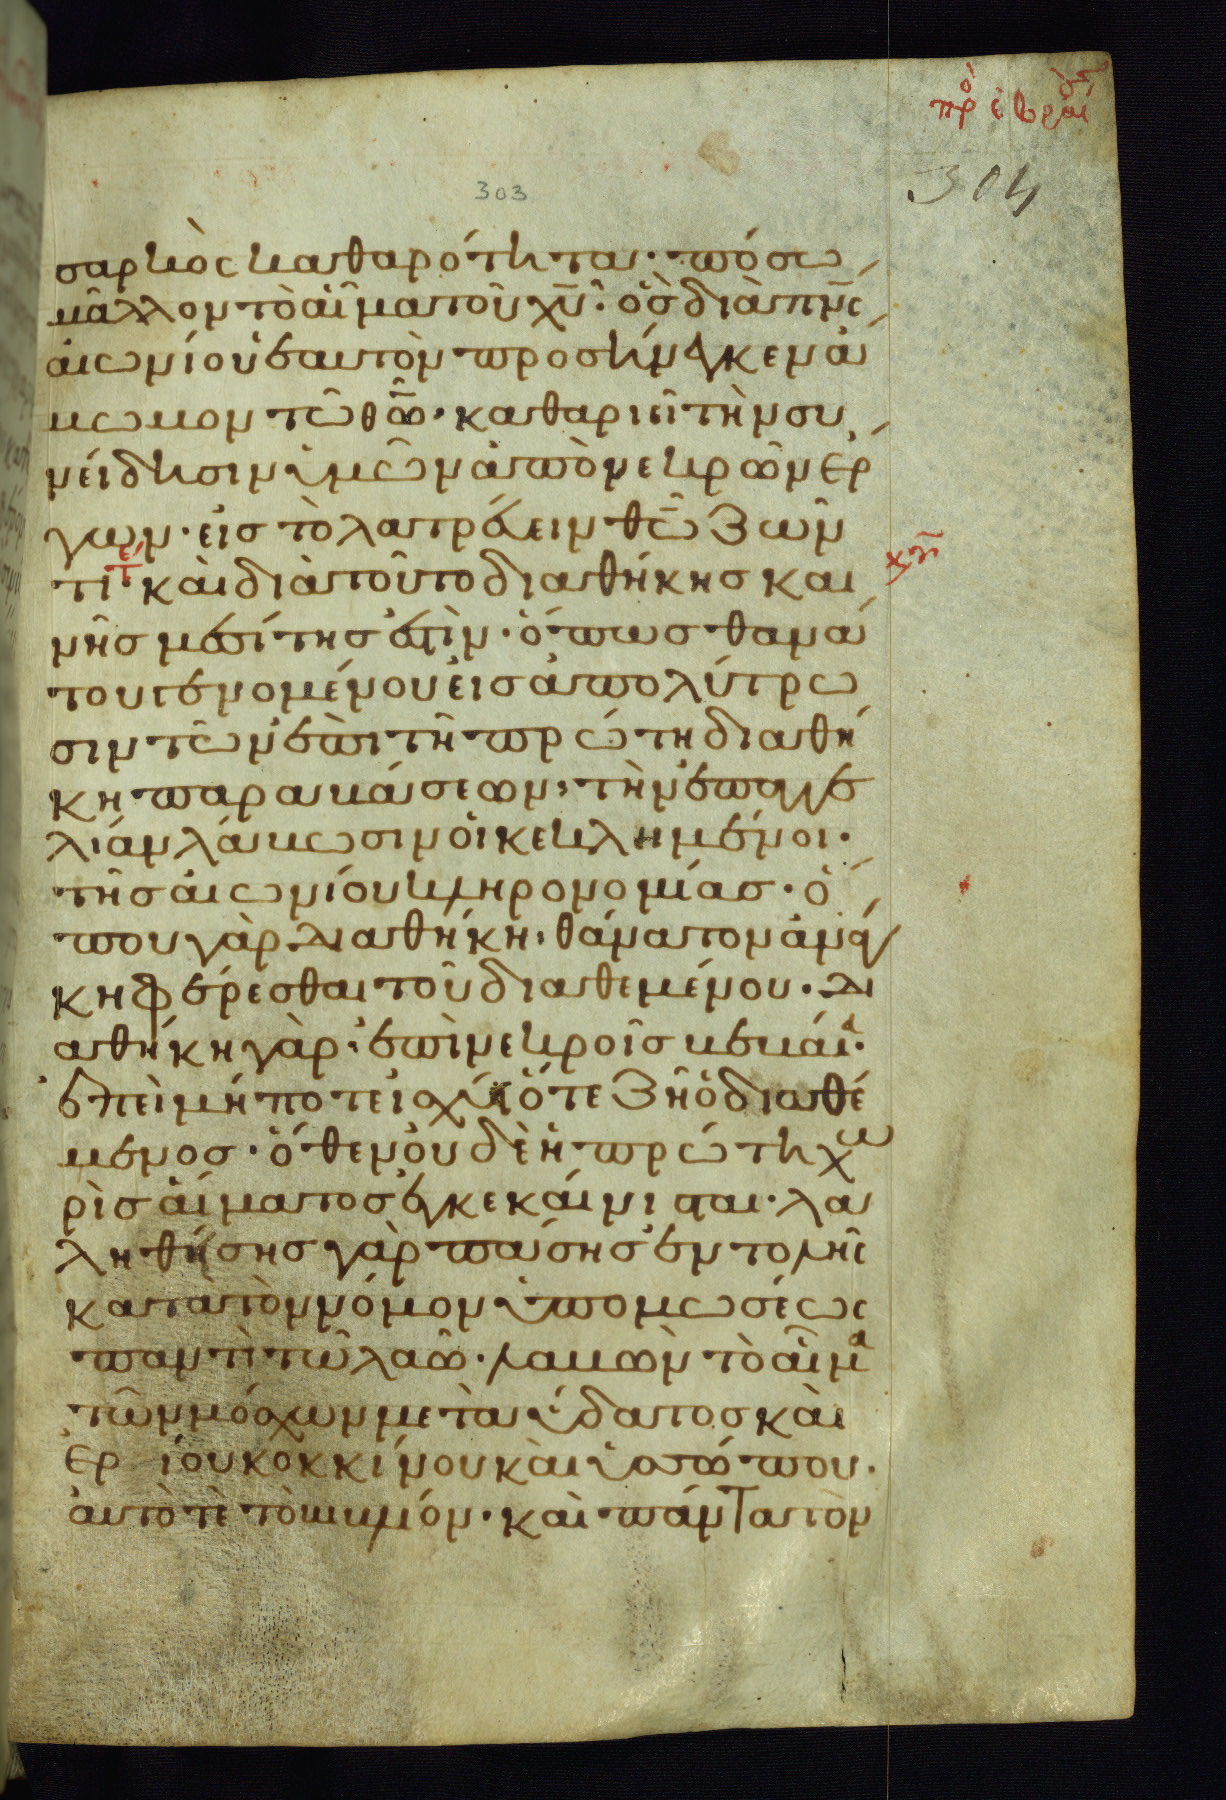 πρ ἑβραί
304
303
σαρκὸς καθαρότητα· πόσω
μᾶλλον τὸ αἷμα τοῦ χῦ· ὃς διὰ πνς
αἰωνίου ἑαυτὸν προσήνεγκεν ἄ
μωμον τῶ θῶ· καθαριεῖ τὴν συ
νείδησιν ὑμῶν ἀπὸ νεκρῶν ἔρ
γων· εἰς τὸ λατρεύειν θῶ ζῶν
τι· καὶ διὰ τοῦτο διαθήκης και
νῆς μεσίτης ἐστὶν· ὅπως θανά
του γενομένου εἰς ἀπολύτρω
σιν τῶν ἐπὶ τῆ πρώτη διαθή
κη παραβάσεων, τὴν ἐπαγγε
λίαν λάβωσιν οἱ κεκλημένοι·
τῆς αἰωνίου κληρονομίας· ὅ
που γὰρ διαθήκη, θάνατον ἀνάγ
κη φέρεσθαι τοῦ διαθεμένου· δι
αθήκη γὰρ ἐπὶ νεκροῖς βεβαία·
ἐπεὶ μήποτε ἰσχύει ὅτε ζῆ ὁ διαθέ
μενος· ὅθεν οὐδὲ ἡ πρώτη χω
ρὶς αἵματος ἐγκεκαίνισται· λα
ληθείσης γὰρ πάσης ἐντολῆς
κατὰ τὸν νόμον ὑπὸ μωσέως
παντὶ τῶ λαῶ· λαβὼν τὸ αἷμα
τῶν μόσχων μετὰ ὕδατος καὶ
ἐρίου κοκκίνου καὶ ὑσσώπου·
αὐτό τε τὸ βιβλίον· καὶ πάντα τὸν